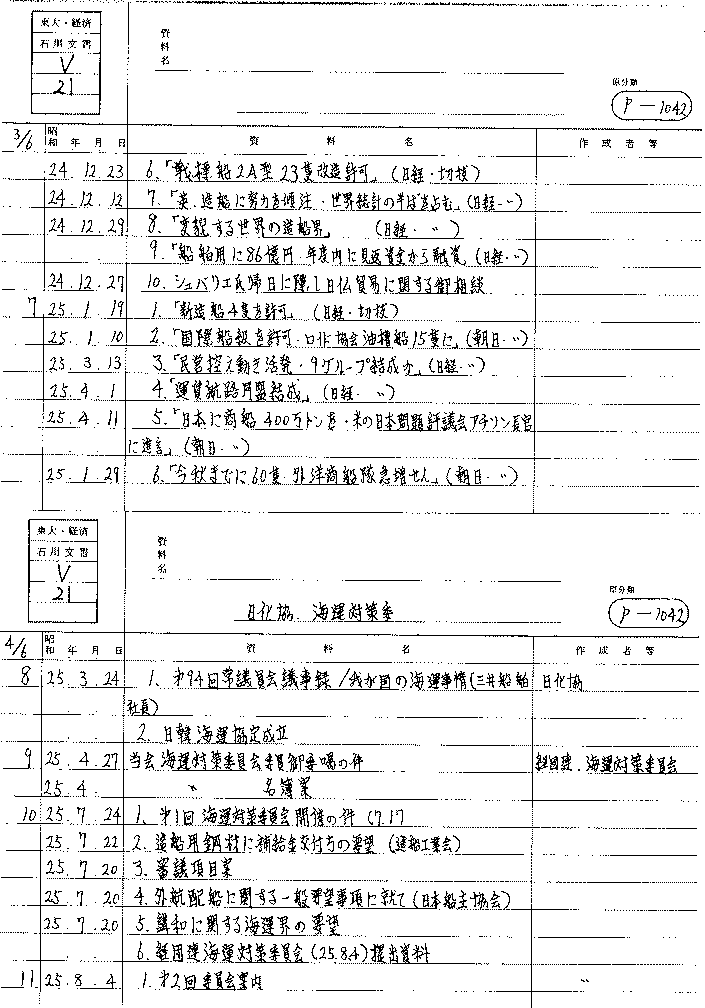 東大・経済
石川文書
V
21
資料名
原分類
P-1042
3/6 昭和 年 月 日 資料名 作成者等
24.12.23 6.「戦標船2A型23隻改造許可」(日経・切抜)
24.12.12 7.「英、造船に努力を傾注・世界統計の半ばを占む」(日経・〃)
24.12.29 8.「変貌する世界の造船界」 (日経・〃)
9.「船舶用に86億円 年度内に見返資金から融資」(日経・〃)
24.12.27 10.シュバリエ氏帰日に際し日仏貿易に関する御相談
7 25.1.19 1.「新造船4隻を許可」(日経・切抜)
25.1.10 2.「国際船級を許可・ロイド協会油槽船15隻に」(朝日・〃)
25.3.13 3.「民営控え動き活発・9グループ結成か」(日経・〃)
25.4.1 4.「運賃航路同盟結成」(日経・〃)
25.4.11 5.「日本に商船400万トンを・米の日本問題評議会アチソン長官
に進言」(朝日・〃)
25.1.29 6.「今秋までに60隻 外洋商船隊急増せん」(朝日・〃)
東大・経済
石川文書
V
21
資料名
日化協 海運対策委
原分類
P-1042
4/6 昭和 年 月 日 資料名 作成者等
8 25.3.24 1.第94回常議員会議事録/我が国の海運事情(三井船舶 日化協
社長)
2.日韓海運協定成立
9 25.4.27 当会海運対策委員会委員御委嘱の件 経団連、海運対策委員会
25.4. 〃 名簿案
10 25.7.24 1.第1回海運対策委員会開催の件(7.17
25.7.22 2.造船用鋼材に補給金交付方の要望(造船工業会)
25.7.20 3.審議項目案
25.7.20 4.外航配船に関する一般要望事項に就て(日本船主協会)
25.7.20 5.講和に関する海運界の要望
6.経団連海運対策委員会(25.8.4)提出資料
11 25.8.4 1.第2回委員会案内 〃